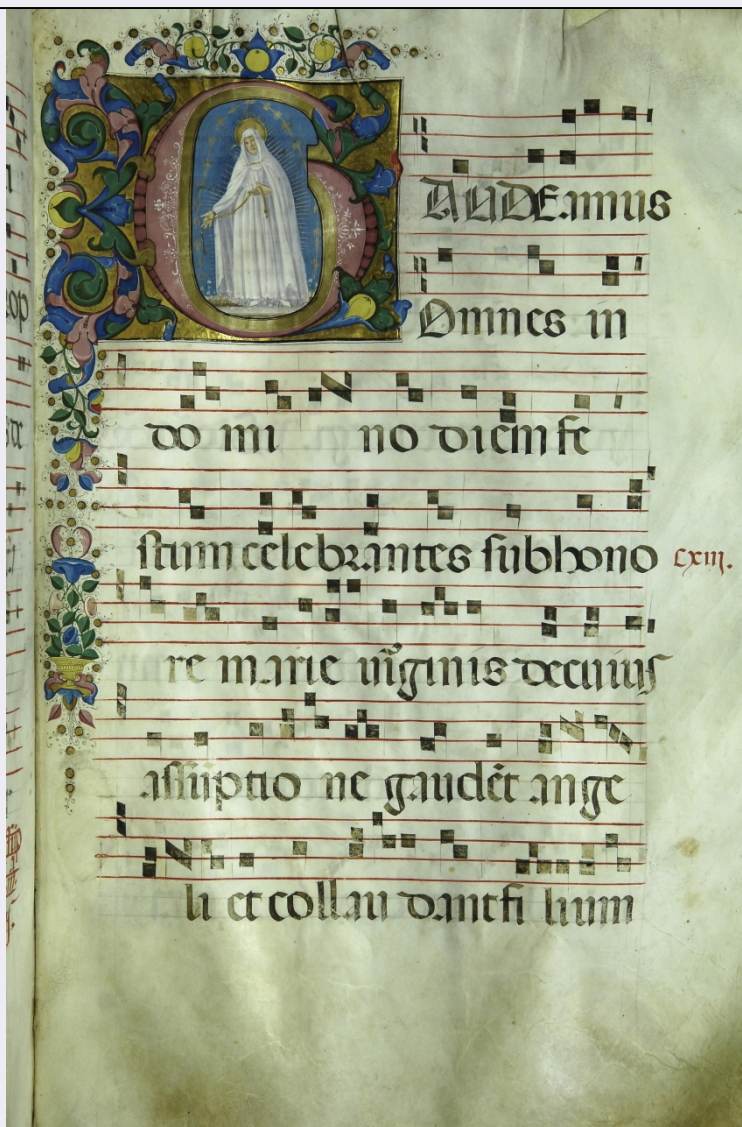 GAUDEamus
Omnes in
do mi no diem fe
stum celebrantes sub hono
cxiij.
re marie uirginis de cuius
assūptio ne gaudēt ange
li et collau dant fi lium